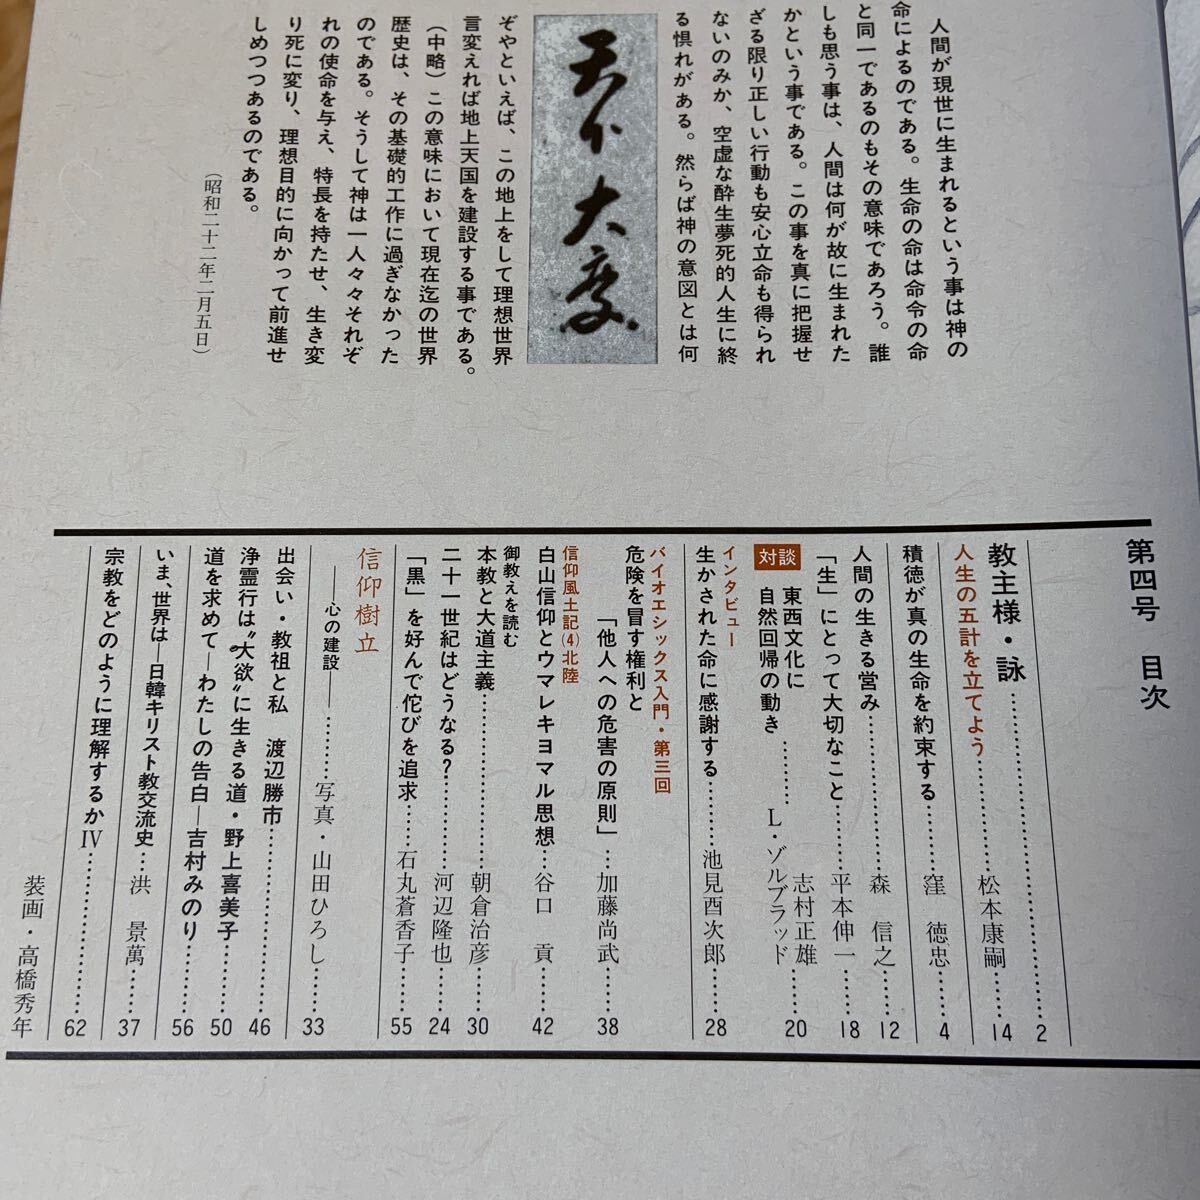 人間が現世に生まれるという事は神の
命によるのである。生命の命は命令の命
と同一であるのもその意味であろう。誰
しも思う事は、人間は何が故に生まれた
かという事である。この事を真に把握せ
ざる限り正しい行動も安心立命も得られ
ないのみか、空虚な酔生夢死的人生に終
る惧れがある。然らば神の意図とは何
天下大度
ぞやといえば、この地上をして理想世界
言変えれば地上天国を建設する事である。
(中略)この意味において現在迄の世界
歴史は、その基礎的工作に過ぎなかった
のである。そうして神は一人々々それぞ
れの使命を与え、特長を持たせ、生き変
り死に変り、理想目的に向かって前進せ
しめつつあるのである。
(昭和二十二年二月五日)
第四号 目次
教主様・詠…………2
人生の五計を立てよう…………松本康嗣……14
積徳が真の生命を約束する…………窪 徳忠……4
人間の生きる営み…………森 信之……12
「生」にとって大切なこと…………平本伸一……18
対談 東西文化に
自然回帰の動き…………志村正雄
L・ゾルブラッド……20
インタビュー
生かされた命に感謝する…………池見酉次郎……28
バイオエシックス入門・第三回
危険を冒す権利と
「他人への危害の原則」…加藤尚武……38
信仰風土記(4)北陸
白山信仰とウマレキヨマル思想…谷口 貢……42
御教えを読む
本教と大道主義…………朝倉治彦……30
二十一世紀はどうなる?…………河辺隆也……24
「黒」を好んで侘びを追求……石丸蒼香子……55
信仰樹立
――心の建設――…………写真・山田ひろし……33
出会い・教祖と私 渡辺勝市…………46
浄霊行は〝大欲〟に生きる道・野上喜美子……50
道を求めて―わたしの告白―吉村みのり……56
いま、世界は―日韓キリスト教交流史…洪 景萬……37
宗教をどのように理解するかⅣ…………62
装画・高橋秀年